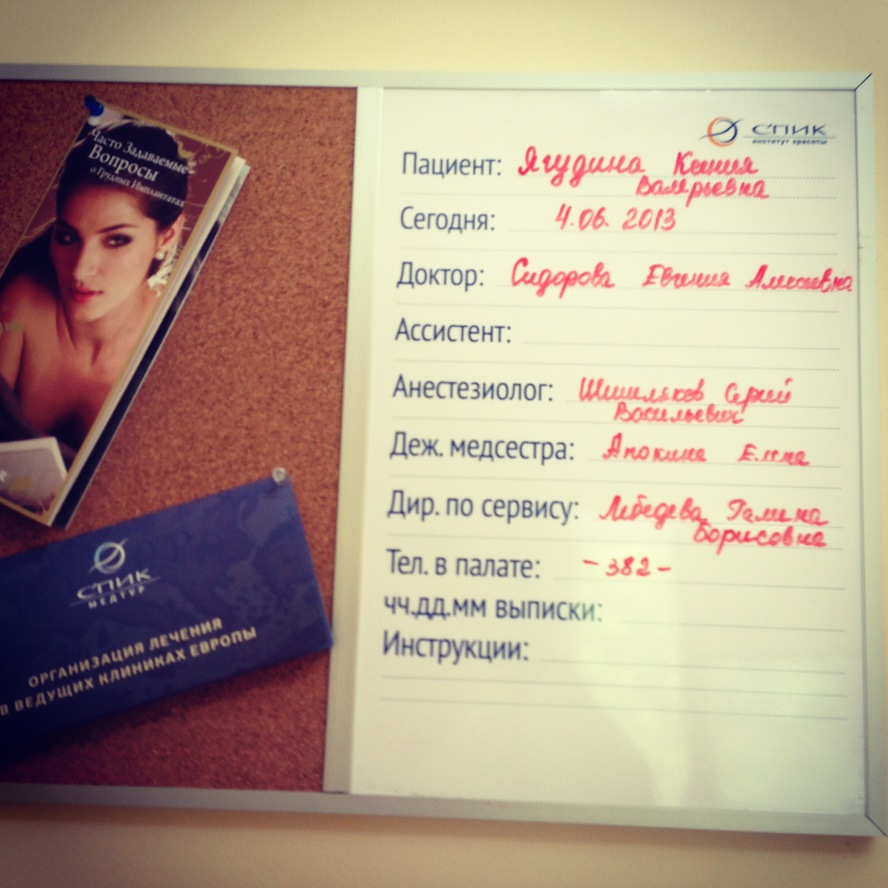 Часто Задаваемые
Вопросы
о Грудных Имплантатах
СПИК
МЕДТУР
ОРГАНИЗАЦИЯ ЛЕЧЕНИЯ
В ВЕДУЩИХ КЛИНИКАХ ЕВРОПЫ
СПИК
институт красоты
Пациент: Ягудина Ксения
Валерьевна
Сегодня: 4.06. 2013
Доктор: Сидорова Евгения Алексеевна
Ассистент:
Анестезиолог: Сергей
Васильевич
Деж. медсестра: Елена
Дир. по сервису: Лебедева Галина
Борисовна
Тел. в палате: -382-
чч.дд.мм выписки:
Инструкции: